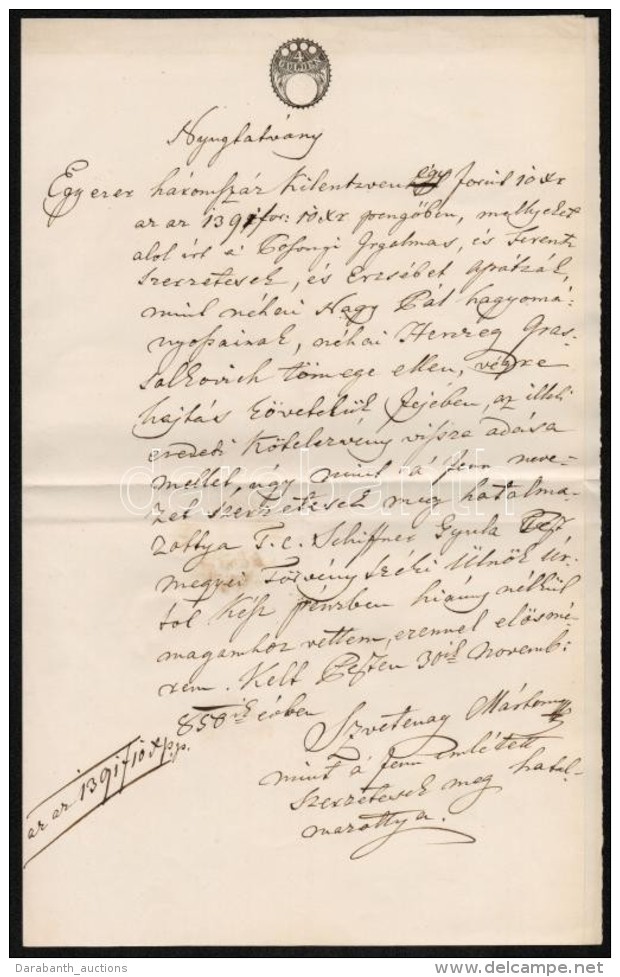 4
GULDEN
Nyugtatvány
Egyezer háromszáz Kilentzvenegy forint 10 xr
az az 1391 for: 10 xr pengőben, mellyeket
alol irt a' Posonyi Irgalmas, és Ferentz
szerzetesek, és Erzsébet apátzák,
mint néhai Nagy Pál hagyomá:
nyossainak, néhai Herczeg Gras-
salkovich tömege ellen, végre
hajtás követelük fejében, az illető
eredeti Kötelezvény vissza adása
mellet, úgy mint a' fenn neve-
zet szerzetesek meg hatalma-
zottya T. c. Schiffner Gyula Pest
megyei Törvény széki Ülnök úr-
tól Kész pénzben hiány nélkül
magamhoz vettem, ezennel elösmé-
rem. Kelt Pesten 30ik Novemb:
850ik évben
Szvetenay Márton
mint a' fenn emlétett
szerzetesek meg hatal-
mazottya.
az az 1391 f 10 x p.p.
darabanth
Darabanth_auctions